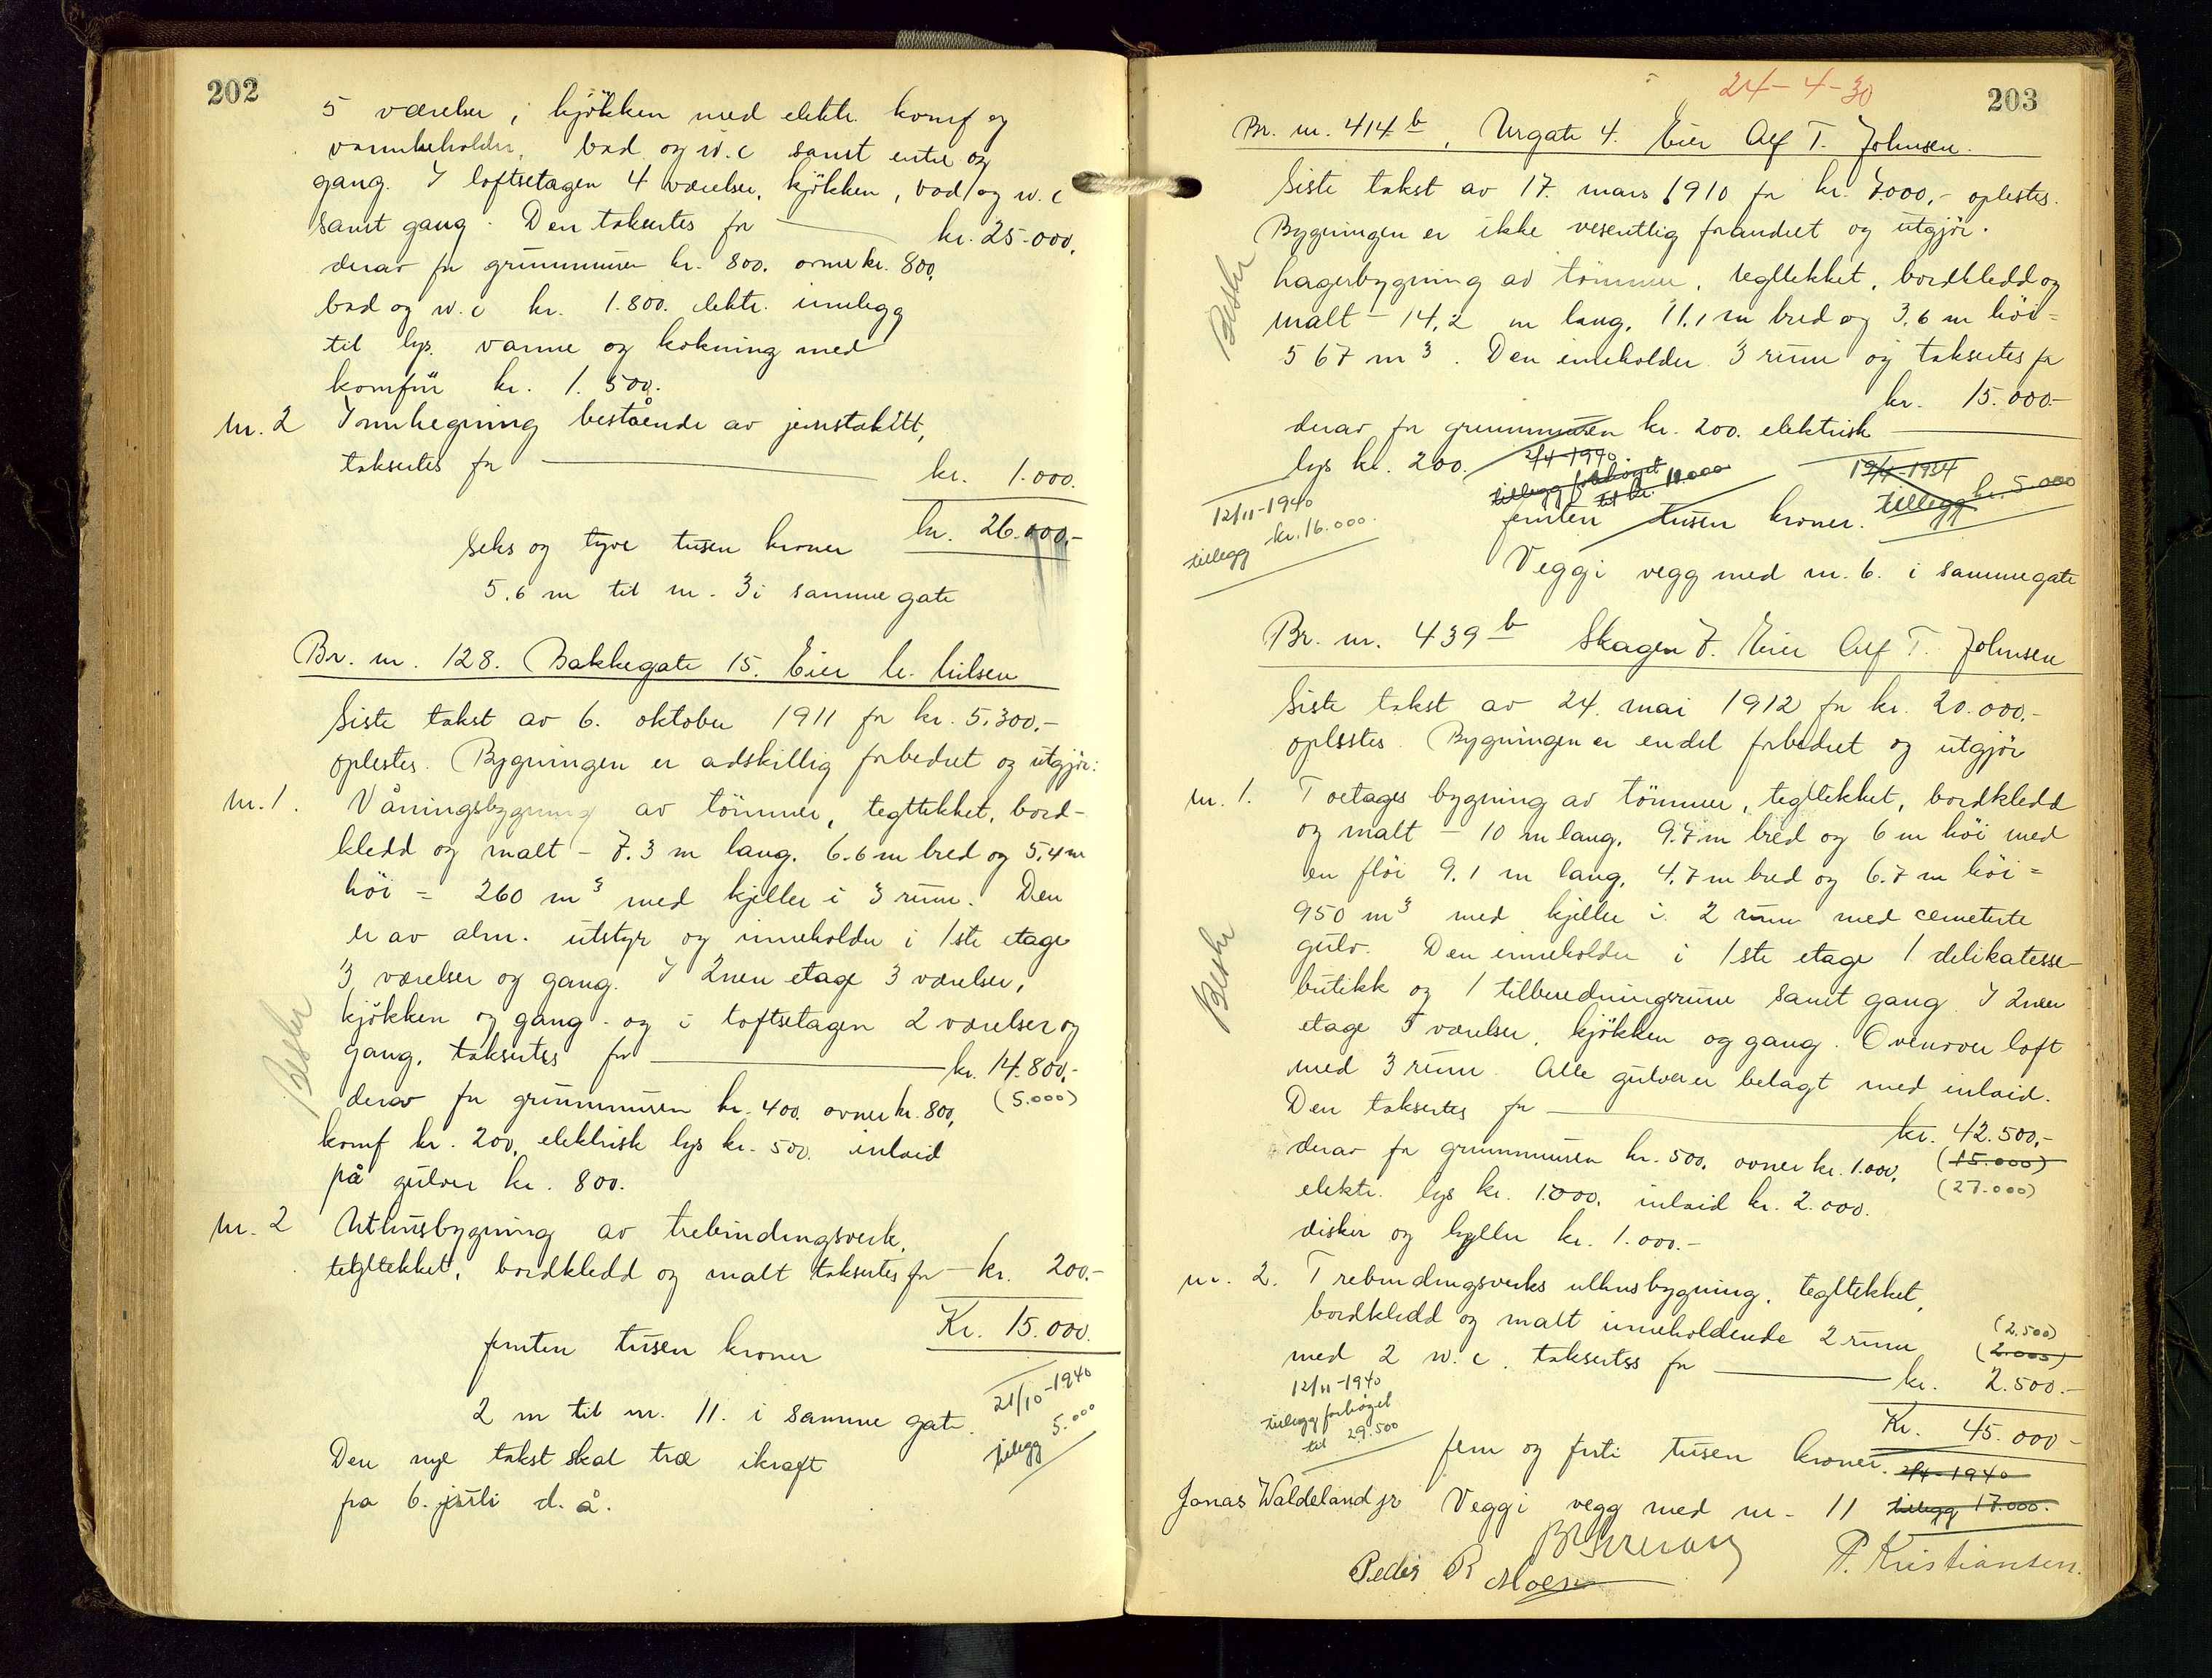 202
5 værelser, kjökken med elektr. komf og
varmbeholder, bad og w.c samt entre og
gang. I loftsetagen 4 værelser, kjökken, bad og w.c
samt gang. Den takseres for kr. 25.000.
derav for grunnmuren kr. 800. ovner kr. 800,
bad og w.c kr. 1.800. elektr. innlegg
til lys. varme og kokning med
komfür kr. 1.500.
nr. 2 Innhegning bestående av jernstakitt,
taksertes for kr. 1.000.
kr. 26.000.-
Seks og tyve tusen kroner
5.6 m til nr. 3 i samme gate
Br. nr. 128. Bakkegate 15. Eier
Siste takst av 6. oktober 1911 for kr. 5.300.-
oplestes. Bygningen er adskillig forbedret og utgjör:
nr. 1. Våningsbygning av tömmer, tegltekket, bord-
kledd og malt - 7.3 m lang. 6.6 m bred og 5.4 m
höi = 260 m³ med kjeller i 3 rum. Den
er av alm. utstyr og inneholder i 1ste etage
3 værelser og gang. I 2nen etage 3 værelser,
kjökken og gang. og i loftsetagen 2 værelser og
gang, taksertes for kr. 14.800,-
(5.000)
derav for grunnmuren kr. 400. ovner kr. 800,
komf kr. 200, elektrisk lys kr. 500. inlaid
på gulver kr. 800.
Beskr
nr. 2 Uthusbygning av trebindingsverk,
tegltekket, bordkledd og malt taksertes for - kr. 200.-
Kr. 15.000.
femten tusen kroner
2 m til nr. 11. i samme gate.
21/10-1940
tillegg 5.000
Den nye takst skal træ ikraft
fra 6. juli d. å.
24-4-30
203
Br. nr. 414 b, Urgate 4. Eier Alf T. Johnsen.
Siste takst av 17. mars 1910 for kr. 7.000,- oplestes.
Bygningen er ikke vesentlig forandret og utgjör.
Lagerbygning av tömmer, tegltekket, bordkledd og
malt - 14,2 m lang, 11,1 m bred og 3,6 m höi =
567 m³. Den inneholder 3 rum og taksertes for
kr. 15.000.-
Beskr
derav for grunnmuren kr. 200. elektrisk
lys kr. 200.
2/4-1940
tillegg forhöget
til kr. 10.000
-1934
tillegg kr. 5.000
12/11-1940
tillegg kr. 16.000.
femten tusen kroner.
Vegg i vegg med nr. 6. i samme gate
Br. nr. 439 b Skagen 7. Eier Alf T. Johnsen
Siste takst av 24. mai 1912 for kr. 20.000,-
oplestes. Bygningen er endel forbedret og utgjör
nr. 1. Toetages bygning av tömmer, tegltekket, bordkledd
og malt - 10 m lang, 9.7 m bred og 6 m höi med
en flöi 9.1 m lang, 4.7 m bred og 6.7 m höi =
950 m³ med kjeller i 2 rum med cementerte
gulv. Den inneholder i 1ste etage 1 delikatesse-
butikk og 1 tilberedningsrum samt gang. I 2nen
etage 5 værelser, kjökken og gang. Ovenover loft
med 3 rum. Alle gulver er belagt med inlaid.
Den taksertes for kr. 42.500,-
Beskr
derav for grunnmuren kr. 500, ovner kr. 1.000, (15.000)
elektr. lys kr. 1.000. inlaid kr. 2.000. (27.000)
disker og hyller kr. 1.000.-
nr. 2. Trebindingsverks uthusbygning, tegltekket,
bordkledd og malt inneholdende 2 rum (2.500)
(2.000)
med 2 w.c. taksertes for kr. 2.500.-
12/11-1940
tillegg forhöget
til 29.500
Kr. 45.000-
fem og firti tusen kroner.
2/4-1940
tillegg 17.000.
Jonas Waldeland jr Vegg i vegg med nr. 11
Peder R Moes
P. Kristiansen.